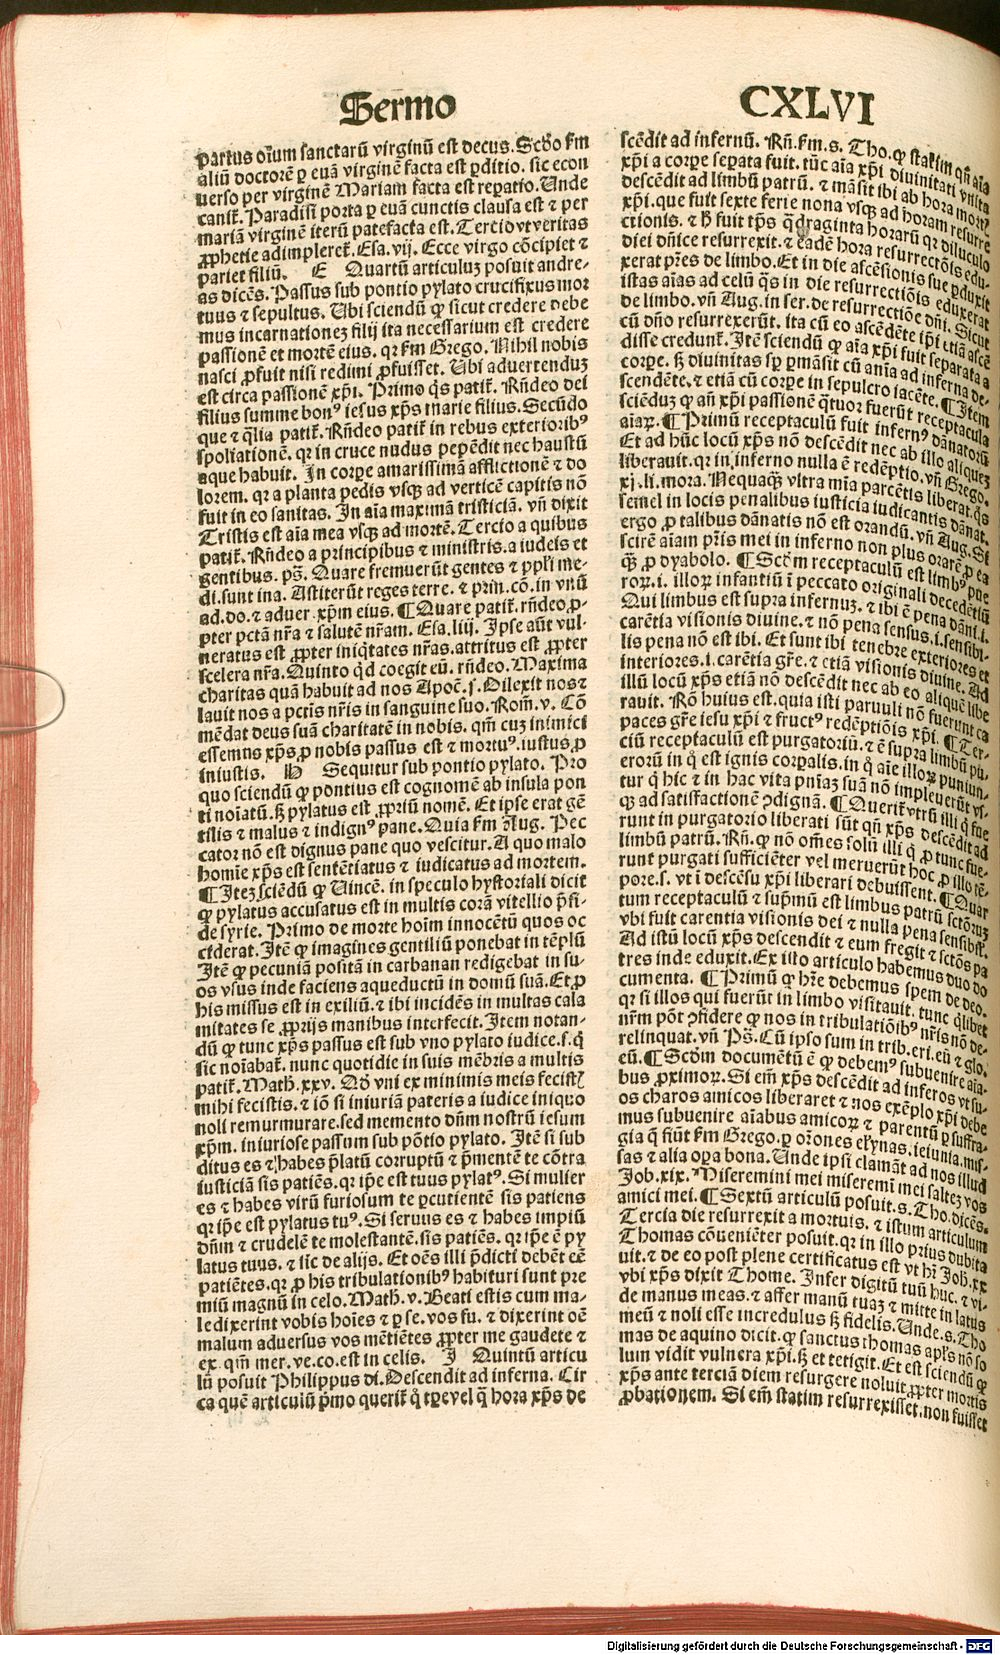 Sermo
CXLVI
partus oīum sanctarū virginū est decus. Scd̄o ẜm
aliū doctorē ꝑ euā virginē facta est ꝑditio. sic econ
uerso per virginē Mariam facta est reꝑatio. Unde
canit᷑. Paradisi porta ꝑ euā cunctis clausa est ⁊ per
mariā virginē iterū patefacta est. Tercio vt veritas
ꝓphetie adimpleret᷑. Esa. vij. Ecce virgo cōcipiet ⁊
pariet filiū. E Quartū articuluꝫ posuit andre-
as dicēs. Passus sub pontio pylato crucifixus mor
tuus ⁊ sepultus. Ubi sciendū ꝙ sicut credere debe
mus incarnationeꝫ filij ita necessarium est credere
passionē et mortē eius. qꝛ ẜm Grego. Nihil nobis
nasci ꝓfuit nisi redimi ꝓfuisset. Ubi aduertenduꝫ
est circa passionē xp̄i. Primo q̄s patit᷑. Rn̄deo dei
filius summe bonꝰ iesus xp̄s marie filius. Secūdo
que ⁊ q̄lia patit᷑. Rn̄deo patit᷑ in rebus exterioribꝰ
spoliationē. qꝛ in cruce nudus pepēdit nec haustū
aque habuit. In corꝑe amarissimā afflictionē ⁊ do
lorem. qꝛ a planta pedis vsqꝫ ad verticē capitis nō
fuit in eo sanitas. In aīa maximā tristiciā. vn̄ dixit
Tristis est aīa mea vsqꝫ ad mortē. Tercio a quibus
patit᷑. Rn̄deo a principibus ⁊ ministris. a iudeis et
gentibus. ps̄. Quare fremuerūt gentes ⁊ ppl̄i me-
di. sunt ina. Astiterūt reges terre. ⁊ prin. cō. in vnū
ad. do. ⁊ aduer. xp̄m eius. ¶ Quare patit᷑. rn̄deo. ꝓ-
pter pctā nr̄a ⁊ salutē nr̄am. Esa. liij. Ipse aūt vul-
neratus est ꝓpter iniqtates nr̄as. attritus est ꝓpter
scelera nr̄a. Quinto qͥd coegit eū. rn̄deo. Maxima
charitas quā habuit ad nos Apoc̄. j. Dilexit nos ⁊
lauit nos a pctīs nr̄is in sanguine suo. Rom̄. v. Cō
mēdat deus suā charitatē in nobis. qm̄ cuꝫ inimici
essemus xp̄s ꝓ nobis passus est ⁊ mortuꝰ. iustus ꝓ
iniustis. H Sequitur sub pontio pylato. Pro
quo sciendū ꝙ pontius est cognomē ab insula pon
ti noīatū. ꝫ pylatus est ꝓpriū nomē. Et ipse erat gē
tilis ⁊ malus ⁊ indignꝰ pane. Quia ẜm Aug. Pec
cator nō est dignus pane quo vescitur. A quo malo
homīe xp̄s est sentētiatus ⁊ iudicatus ad mortem.
¶ Iteꝫ sciēdū ꝙ Uincē. in speculo hystoriali dicit
ꝙ pylatus accusatus est in multis corā vitellio p̄fi-
de syrie. Primo de morte hoīm innocētū quos oc
ciderat. Itē ꝙ imagines gentiliū ponebat in tēplū
Itē ꝙ pecuniā positā in carbanan redigebat in su-
os vsus inde faciens aqueductū in domū suā. Et ꝓ
his missus est in exiliū. ⁊ ibi incidēs in multas cala
mitates se ꝓprijs manibus interfecit. Item notan-
dū ꝙ tunc xp̄s passus est sub vno pylato iudice. s. qͥ
sic noīabat᷑. nunc quotidie in suis mēbris a multis
patit᷑. Math. xxv. Qd̄ vni ex minimis meis fecistꝭ
mihi fecistis. ⁊ iō si iniuriā pateris a iudice iniquo
noli remurmurare. sed memento dn̄m nostrū iesum
xp̄m. iniuriose passum sub pōtio pylato. Itē si sub
ditus es ⁊ habes p̄latū corruptū ⁊ p̄mentē te cōtra
iusticiā sis patiēs. qꝛ ip̄e est tuus pylatꝰ. Si mulier
es ⁊ habes virū furiosum te ꝑcutientē sis patiens
qꝛ ip̄e est pylatus tuꝰ. Si seruus es ⁊ habes impiū
dn̄m ⁊ crudelē te molestantē. sis patiēs. qꝛ ip̄e ē py
latus tuus. ⁊ sic de alijs. Et oēs illi p̄dicti debēt eē
patiētes. qꝛ ꝓ his tribulationibꝰ habituri sunt pre
miū magnū in celo. Math. v. Beati estis cum ma-
le dixerint vobis hoīes ⁊ ꝑse. vos fu. ⁊ dixerint oē
malum aduersus vos mētiētes ꝓpter me gaudete ⁊
ex. qm̄ mer. ve. co. est in celis. I Quintū articu
lū posuit Philippus di. Descendit ad inferna. Cir
ca quē articulū p̄mo querit᷑ qͦ tꝑe vel q̄ hora xp̄s de
scēdit ad infernū. Rn̄. ẜm. s. Tho. ꝙ statim qn̄ aīa
xp̄i a corꝑe seꝑata fuit. tūc aīa xp̄i diuinitati vnita
descēdit ad limbū patrū. ⁊ māsit ibi ab hora mortꝭ
xp̄i. que fuit sexte ferie nona vsqꝫ ad horam resurre
ctionis. ⁊ ꝫ fuit tp̄s qͣdraginta horarū qꝛ diluculo
diei dn̄ice resurrexit. ⁊ eadē hora resurrectōis edu-
xerat pr̄es de limbo. Et in die ascēsionis sue ꝑduxit
istas aīas ad celū q̄s in die resurrectiōis eduxerat
de limbo. vn̄ Aug. in ser. de resurrectiōe dn̄i. Sicut
cū dn̄o resurrexerūt. ita cū eo ascēdēte ip̄i etiā ascē
disse credunt᷑. Itē sciendū ꝙ aīa xp̄i fuit separata a
corꝑe. ꝫ diuinitas sꝑ ꝑmāsit cū anīa ad inferna de-
scendēte. ⁊ etiā cū corꝑe in sepulcro iacēte. ¶ Item
sciēduꝫ ꝙ an̄ xp̄i passionē qͣtuor fuerūt receptacula
aīarꝫ. ¶ Primū receptaculū fuit infernꝰ dānatorū
Et ad hūc locū xp̄s nō descēdit nec ab illo aliqueꝫ
liberauit. qꝛ in inferno nulla ē redēptio. vn̄ Grego.
xj. li. mora. Nequaqͣꝫ vltra mīa parcētis liberat. q̄s
semel in locis penalibus iusticia iudicantis dānat.
ergo ꝓ talibus dānatis nō est orandū. vn̄ Aug. Si
scirē aīam pr̄is mei in inferno non plus orarē ꝓ ea
qͣꝫ ꝓ dyabolo. ¶ Scd̄m receptaculū est limbꝰ pue
rorꝫ. i. illorꝫ infantiū ī peccato originali decedētiū
Qui limbus est supra infernuꝫ. ⁊ ibi ē pena dāni. i.
carētia visionis diuine. ⁊ nō pena sensus. i. sensibi-
lis pena nō est ibi. Et sunt ibi tenebre exteriores et
interiores. i. carētia gr̄e. ⁊ etiā visionis diuine. Ad
illū locū xp̄s etiā nō descēdit nec ab eo aliquē libe
rauit. Rō huius est. quia isti paruuli nō fuerunt ca
paces gr̄e iesu xp̄i ⁊ fructꝰ redēptiōis xp̄i. ¶ Ter-
ciū receptaculū est purgatoriū. ⁊ ē supra limbū pu-
erorū in qͦ est ignis corꝑalis. in qͦ aīe illorꝫ puniun-
tur qͥ hic ⁊ in hac vita pn̄iaꝫ suā nō impleuerūt vs-
qꝫ ad satisfactionē ꝯdignā. ¶ Querit᷑ vtrū illi qͥ fue
runt in purgatorio liberati sūt qn̄ xp̄s descēdit ad
limbū patrū. Rn̄. ꝙ nō om̄es solū illi qͥ ꝓ tunc fue-
runt purgati sufficiēter vel meruerūt hoc ꝓ illo tē-
pore. s. vt ī descēsu xp̄i liberari debuissent. ¶ Quar
tum receptaculū ⁊ supmū est limbus patrū sctōruꝫ
vbi fuit carentia visionis dei ⁊ nulla pena sensibiſ.
Ad istū locū xp̄s descendit ⁊ eum fregit ⁊ sctōs pa
tres inde eduxit. Ex isto articulo habemus duo do
cumenta. ¶ Primū ꝙ hr̄e debemus spem de deo.
qꝛ si illos qui fuerūt in limbo visitauit. tunc qͥlibet
nr̄m pōt ꝯfidere ꝙ nos in tribulatiōibꝰ nr̄is nō de-
relinquat. vn̄ Ps̄. Cū ipso sum in trib. eri. eū ⁊ glo.
eū. ¶ Scd̄m documētū ē ꝙ debemꝰ subuenire aīa-
bus ꝓximorꝫ. Si em̄ xp̄s descēdit ad inferos vt su-
os charos amicos liberaret ⁊ nos exēplo xp̄i debe
mus subuenire aīabus amicorꝫ ⁊ parentū ꝑ suffra-
gia q̄ fiūt ẜm Grego. ꝑ or̄ones elꝫynas. ieiunia. mis-
sas ⁊ alia oꝑa bona. Unde ipsi clamāt ad nos illud
Job. xix. Miseremini mei miseremī mei salteꝫ vos
amici mei. ¶ Sextū articulū posuit. s. Tho. dicēs.
Tercia die resurrexit a mortuis. ⁊ istum articulum
Thomas cōueniēter posuit. qꝛ in illo prius dubita
uit. ⁊ de eo post plene certificatus est vt hr̄ Joh. xx
vbi xp̄s dixit Thome. Infer digitū tuū huc. ⁊ vi-
de manus meas. ⁊ affer manū tuaꝫ ⁊ mitte in latus
meū ⁊ noli esse incredulus ꝫ fidelis. Unde. s. Tho
mas de aquino dicit. ꝙ sanctus thomas apl̄s nō so
lum vidit vulnera xp̄i. ꝫ et tetigit. Et est sciendū ꝙ
xp̄s ante terciā diem resurgere noluit ꝓpter mortis
ꝓbationem. Si em̄ statim resurrexisset. non fuisset
Digitalisierung gefördert durch die Deutsche Forschungsgemeinschaft - DFG